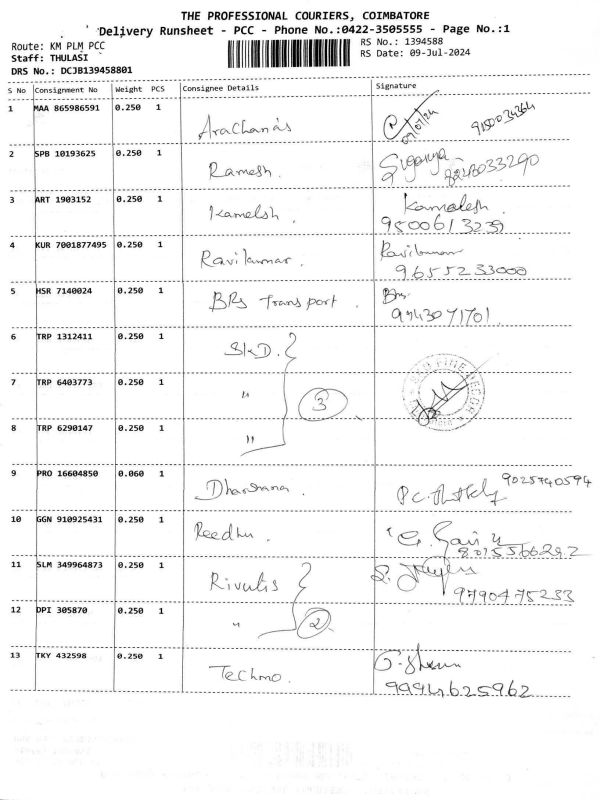 THE PROFESSIONAL COURIERS, COIMBATORE
Delivery Runsheet - PCC - Phone No.:0422-3505555 - Page No.:1
Route: KM PLM PCC
RS No.: 1394588
Staff: THULASI
RS Date: 09-Jul-2024
DRS No.: DCJB139458801
S No Consignment No Weight PCS Consignee Details Signature
1 MAA 865986591 0.250 1
Arachanas 09/07/24 9150034364
2 SPB 10193625 0.250 1
Ramesh. Suganya
3 ART 1903152 0.250 1
Kamelsh. Kamalesh.
9500613239
4 KUR 7001877495 0.250 1
Ravikumar. Ravikumar
9655233000
5 HSR 7140024 0.250 1
BRS Transport.
9943071701
6 TRP 1312411 0.250 1
SKD.
7 TRP 6403773 0.250 1
" 3
8 TRP 6290147 0.250 1
"
9 PRO 16604850 0.060 1
Dharshana. 9025740594
10 GGN 910925431 0.250 1
Reedhu.
8015566292
11 SLM 349964873 0.250 1
Rivulis
9790475233
12 DPI 305870 0.250 1
" 2
13 TKY 432598 0.250 1
Techmo.
9994625962